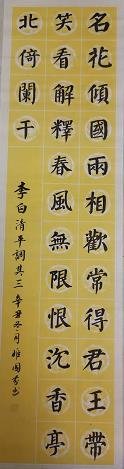 名花傾國兩相歡常得君王帶
笑看解釋春風無限恨沉香亭
北倚闌干
李白清平調其三 辛丑冬月